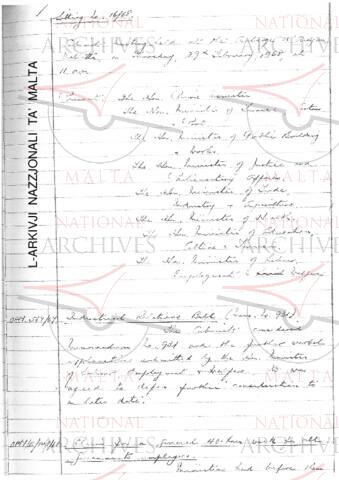 1
Sitting No. 16/68.
held at the
on Thursday, 29th February, 1968, at
11 a.m.
Present: The Hon. Prime Minister
The Hon. Minister of Finance
& Port.
The Hon. Minister of Public Building
& Works.
The Hon. Minister of Justice and
Parliamentary Affairs.
The Hon. Minister of Trade,
Industry & Agriculture.
The Hon. Minister of Health.
The Hon. Minister of Education,
Culture & Tourism.
The Hon. Minister of Labour,
Employment & Social Welfare
Industrial Relations Bill (Memo. No. 931)
The Cabinet considered
Memorandum No. 931 and the further verbal
explanations submitted by the Hon. Minister
of Labour, Employment & Welfare. It was
agreed to defer further consideration to
a later date.
Claim for a general 40-hour week
Government employees.
Ministers had before them
L-ARKIVJI NAZZJONALI TA' MALTA
NATIONAL
ARCHIVES
MALTA